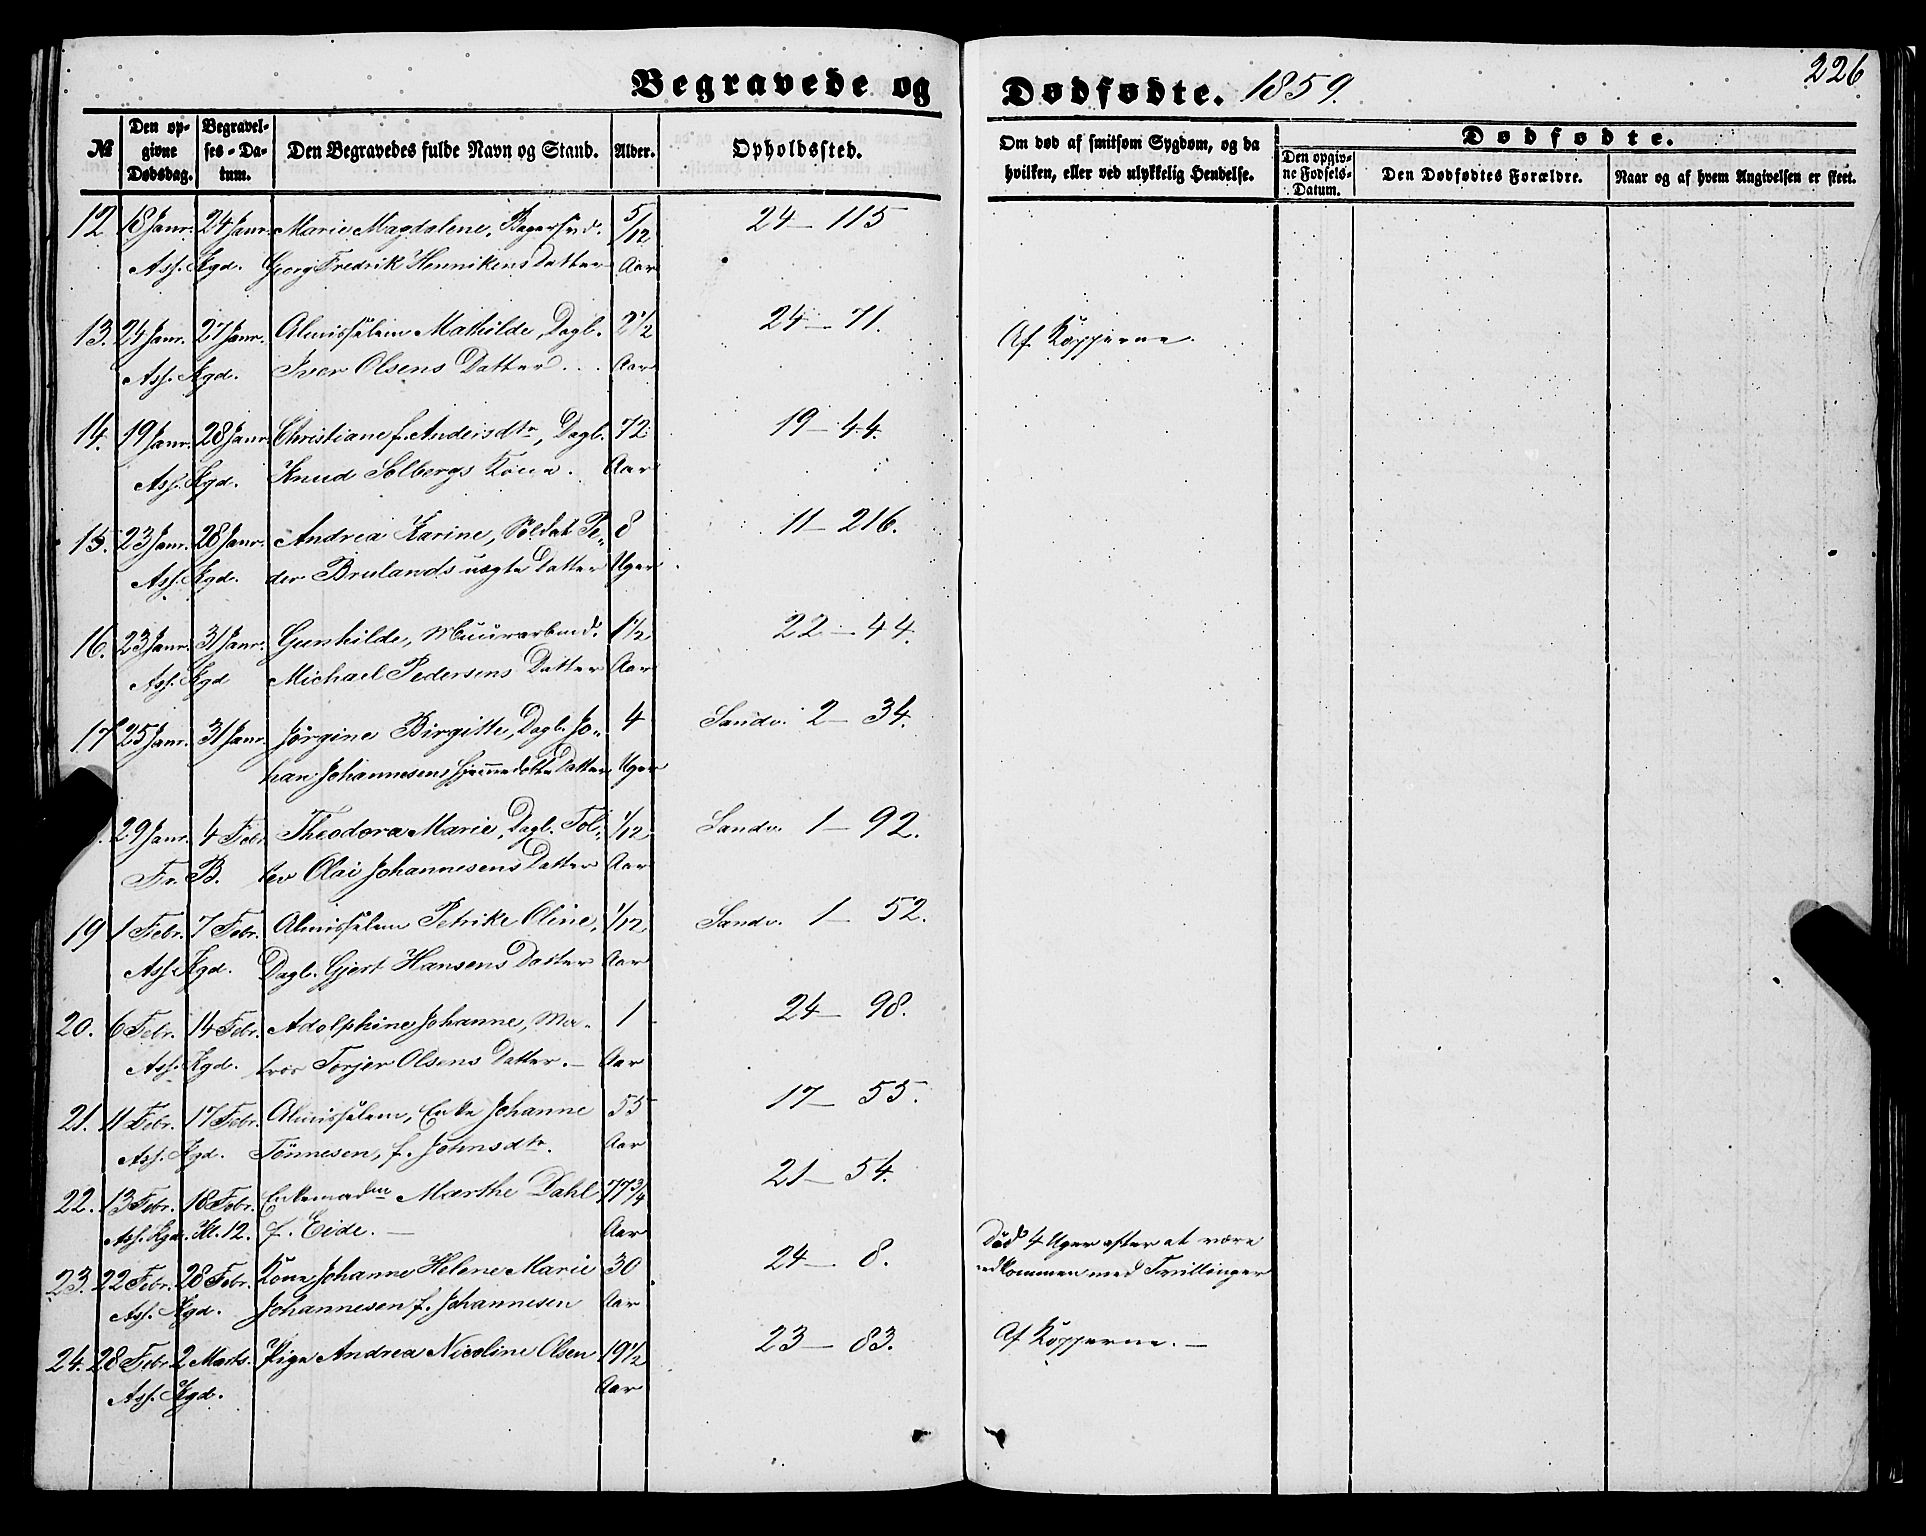 Begravede og Dødfødte. 1859. 226
№ Den opgivne Dødsdag. Begravelses-Datum. Den Begravedes fulde Navn og Stand. Alder. Opholdssted. Om død af smitsom Sygdom, og da hvilken, eller ved ulykkelig Hendelse. Dødfødte. Den opgivne Fødsels-Datum. Den Dødfødtes Forældre. Naar og af hvem Angivelsen er skeet.
12 18 Janr. 24 Janr. Marie Magdalene, Bagersvd. 5/12 24 — 115
Ass. Kgd. Georg Fredrik Hennikens Datter Aar
13. 24 Janr. 27 Janr. Almisselem Mathilde, Dagl. 2 1/2 24 — 71. Af Kopperne.
Ass. Kgd. Iver Olsens Datter Aar
14. 19 Janr. 28 Janr. Christiane f. Andersdtr, Dagl. 72 19 — 44.
Ass. Kgd. Knud Solbergs Kone. Aar
15. 23 Janr. 28 Janr. Andrea Karine, Soldat Pe- 8 11 — 216.
Ass. Kgd. der Brulands uægte Datter Uger
16. 23 Janr. 31 Janr. Gunhilde, Muurarbeid. 1 1/2 22 — 44.
Ass. Kgd Michael Pedersens Datter Aar
17 25 Janr. 31 Janr. Jørgine Birgitte, Dagl. Jo- 4 Sandv. 2 — 34.
han Johannesens hjemmedøbte Datter Uger
29 Janr. 4 Febr. Theodora Marie, Dagl. Tol- 1/12 Sandv. 1 — 92.
Fr. B. lev Olai Johannesens Datter Aar
19 1 Febr. 7 Febr. Almisselem Petrike Oline, 1/12 Sandv. 1 — 52.
Ass. Kgd. Dagl. Gjert Hansens Datter Aar
20. 6 Febr. 14 Febr. Adolphine Johanne, Ma- 1 24 — 98.
Ass. Kgd. tros Torjer Olsens Datter. — Aar
21. 11 Febr. 17 Febr. Almisselem, Enke Johanne 55 17 — 55.
Ass. Kgd. Tönnesen, f. Johnsdtr. Aar
22. 13 Febr. 18 Febr. Enkemadme Marthe Dahl 77 3/4 21 — 54.
Ass. Kgd. Kl. 12. f. Eide. — Aar
23. 22 Febr. 28 Febr. Kone Johanne Helene Marie 30 24 — 8. Död 4 Uger efter at være
Ass. Kgd. Johannesen f. Johannesen Aar nedkommen med Tvillinger
24. 28 Febr. 2 Marts. Pige Andrea Nicoline Olsen 19 1/2 23 — 83. Af Kopperne. —
Ass. Kgd. Aar